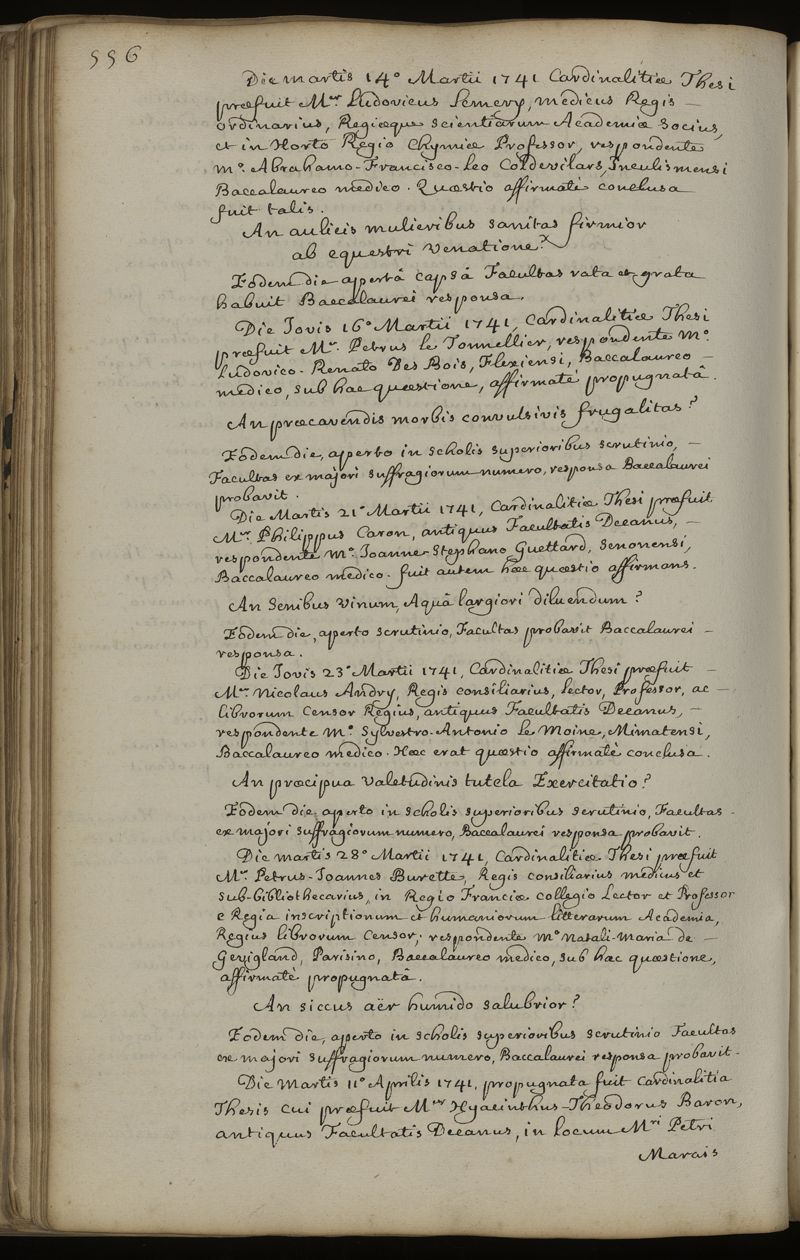 556
Die martis 14° Martii 1741 Cardinalitiæ Thesi
præfuit M.er Ludovicus Lemery, medicus Regis –
ordinarius, Regiæque scientiarum Academiæ Socius,
et in Horto Regio Chymiæ Professor, respondente
M°. Abrahamo-Francisco-Leo Coldevilars, Inculismensi
Baccalaureo medico. Quæstio affirmatè conclusa
fuit talis.
An aulicis mulieribus sanitas firmior
ab equestri Venatione?
Eodem die apertâ capsâ Facultas rata et grata
habuit Baccalaurei responsa.
Die Jovis 16° Martii 1741, Cardinalitiæ Thesi
præfuit M.er Petrus le Tonnellier, respondente M°.
Ludovico-Renato Des Bois, Flexiensi, Baccalaureo –
medico, sub hac quæstione, affirmatè propugnatâ.
An præcavendis morbis convulsivis frugalitas?
Eodem die, aperto in scholis superioribus scrutinio, –
Facultas ex majori suffragiorum numero, responsa Baccalaurei
probavit.
Die Martis 21° Martii 1741, Cardinalitiæ Thesi præfuit
M.er Philippus Caron, antiquus Facultatis Decanus, –
respondente M°. Joanne-Stephano Guettard, Senonensi,
Baccalaureo medico. fuit autem hæc quæstio affirmans.
An Senibus Vinum, Aquâ largiori diluendum?
Eodem die, aperto scrutinio, Facultas probavit Baccalaurei –
responsa.
Die Jovis 23° Martii 1741, Cardinalitiæ Thesi præfuit –
M.er Nicolaus Andry, Regis consiliarius, Lector, Professor, ac –
librorum Censor Regius, antiquus Facultatis Decanus, –
respondente M°. Sylvestro-Antonio Le Moine, Mimatensi,
Baccalaureo medico. Hæc erat quæstio affirmatè conclusa.
An præcipua Valetudinis tutela Exercitatio?
Eodem die, aperto in scholis superioribus scrutinio, Facultas –
ex majori suffragiorum numero, Baccalaurei responsa probavit.
Die martis 28° Martii 1741, Cardinalitiæ Thesi præfuit
M.er Petrus-Joannes Burette, Regis consiliarius medicus et
Sub-bibliothecarius, in Regio Franciæ collegio Lector et Professor
e Regia inscriptionum et humaniorum litterarum Academia,
Regius librorum Censor, respondente M° Natali-Maria de –
Gevigland, Parisino, Baccalaureo medico, sub hac quæstione,
affirmatè propugnatâ.
An siccus aër humido salubrior?
Eodem die, aperto in scholis superioribus scrutinio Facultas
ex majori suffragiorum numero, Baccalaurei responsa probavit.
Die Martis 11° Aprilis 1741, propugnata fuit Cardinalitia
Thesis cui præfuit M.er Hyacinthus-Theodorus Baron,
antiquus Facultatis Decanus, in locum M.ri Petri
Marais